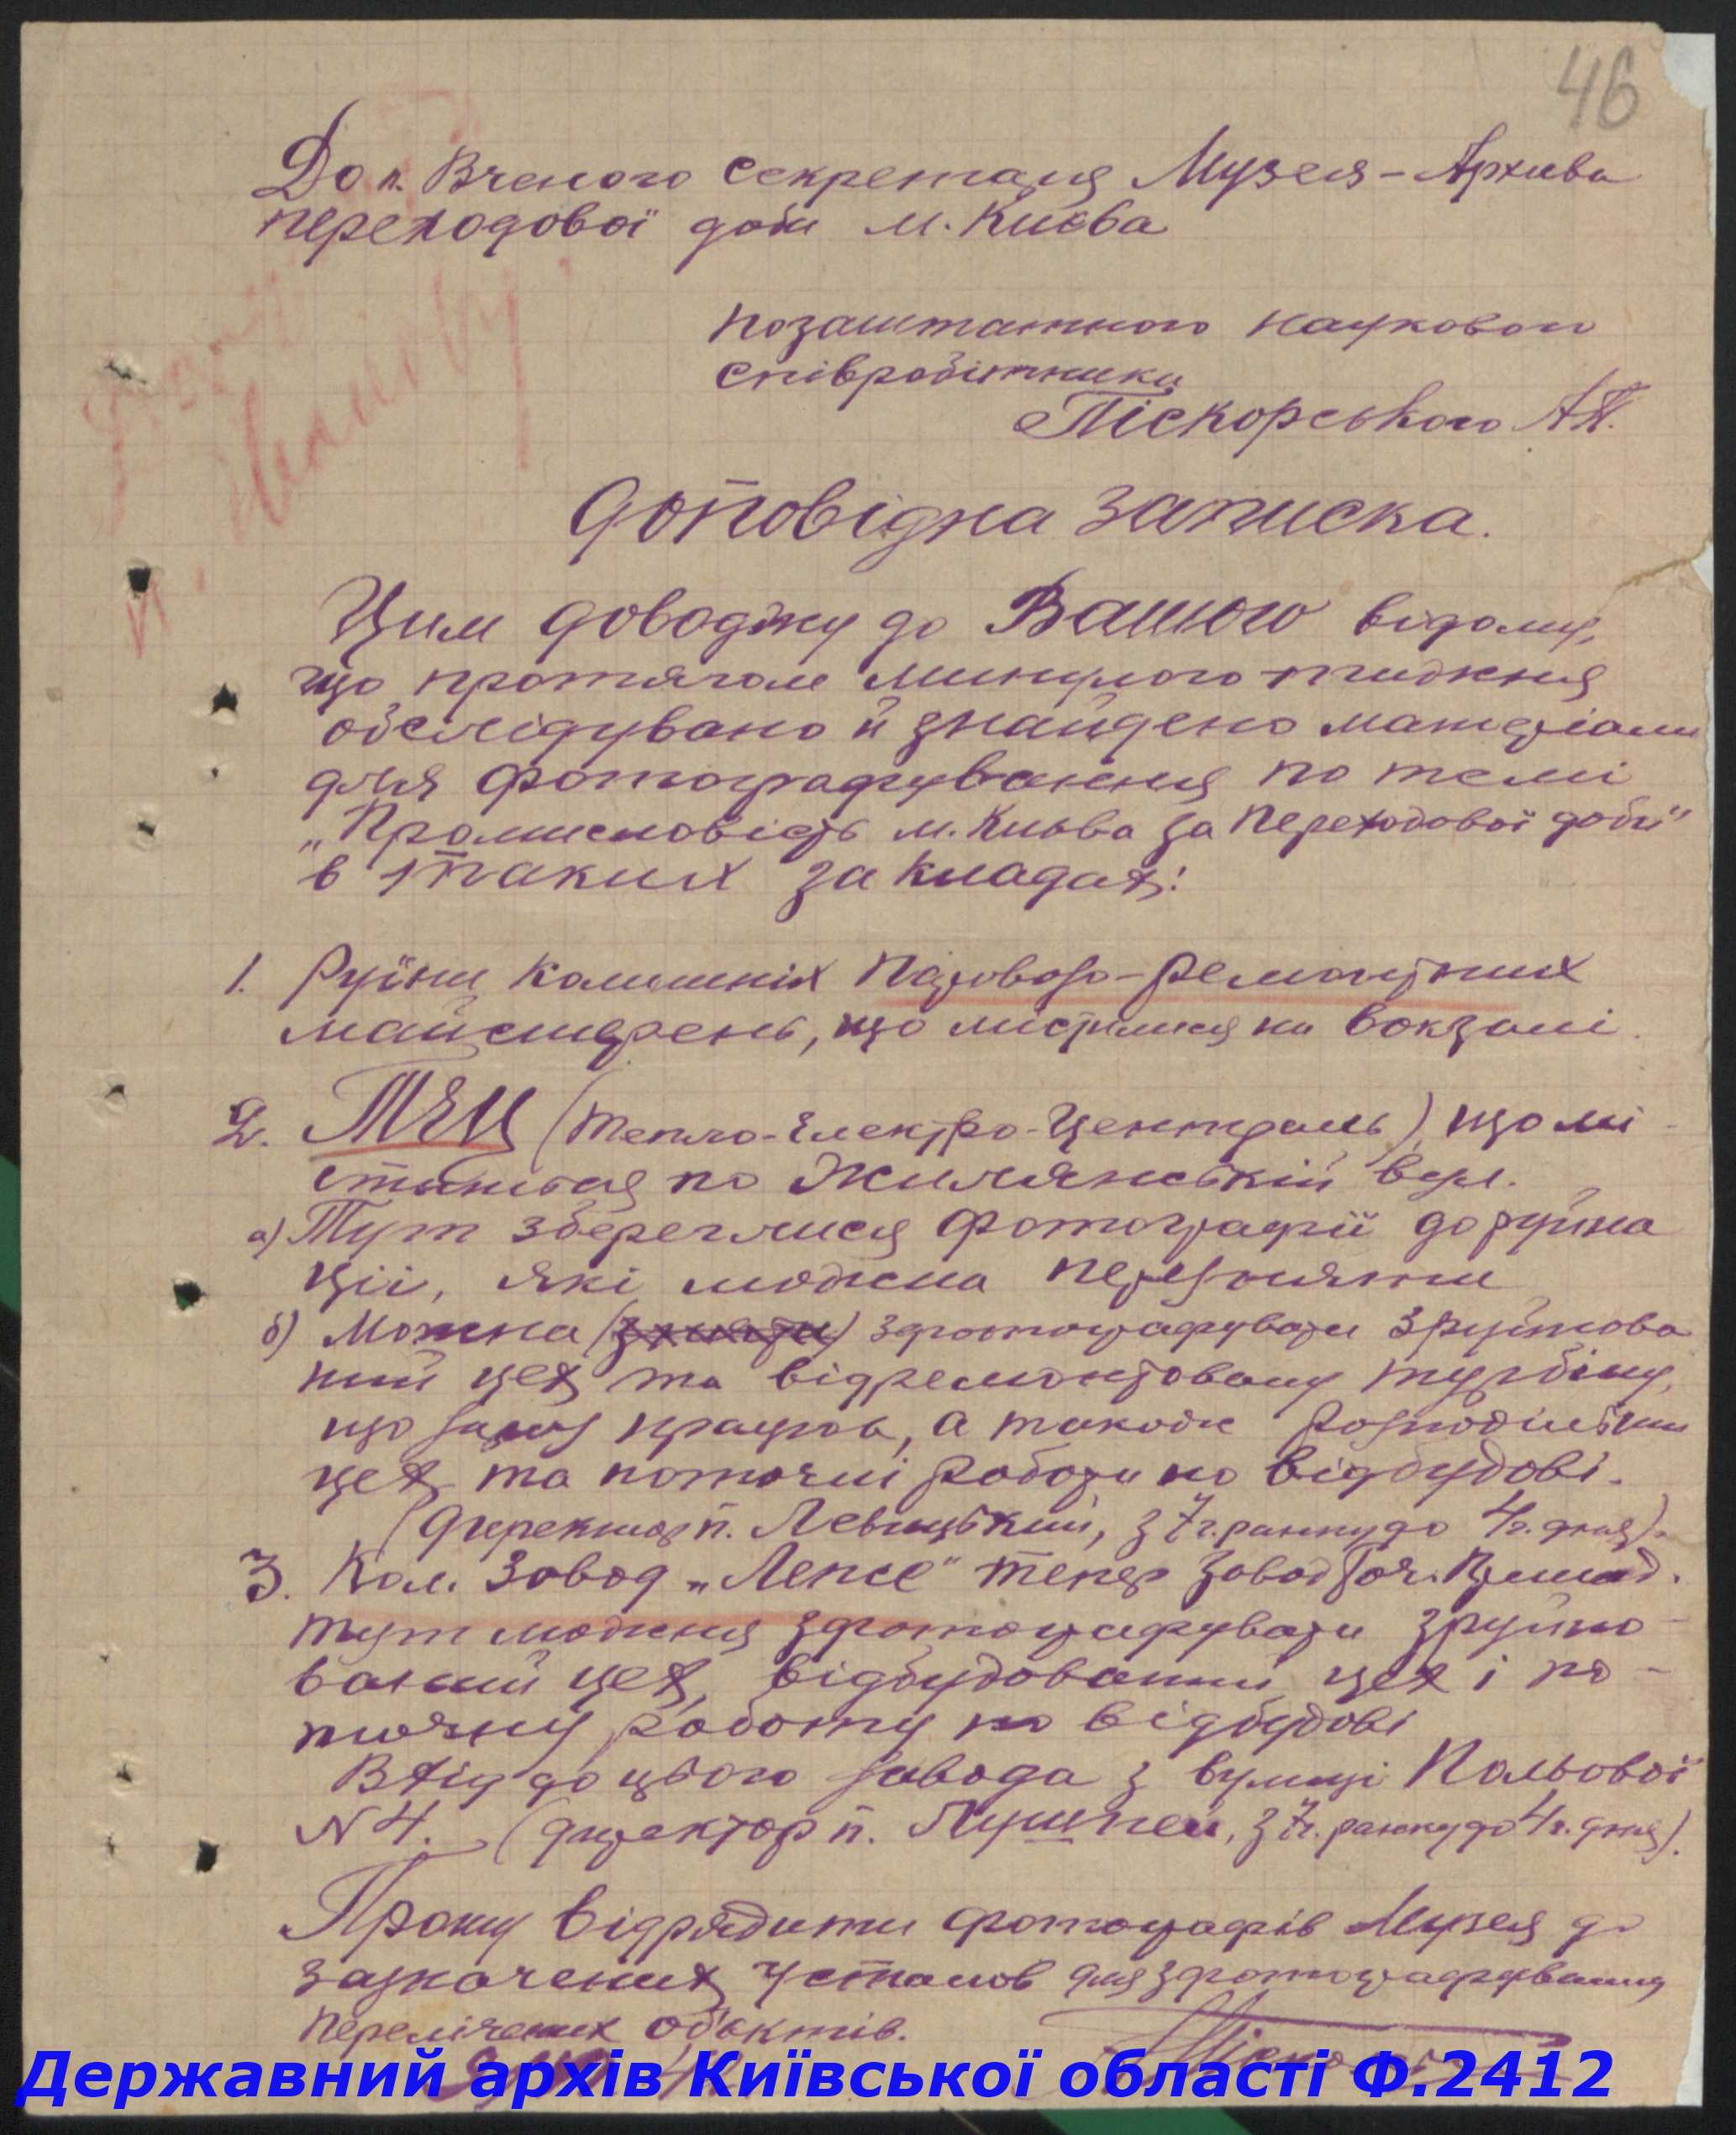 46
До п. Вченого Секретаря Музея-Архива
переходової доби м. Києва
позаштатного наукового
співробітника
Піскорського А.П.
Доповідна записка.
Цим доводжу до Вашого відому,
що протягом минулого тиждня
обслідувано й знайдено матеріали
для фотографування по темі
„Промисловість м. Києва за переходової доби"
в таких закладах:
1. Руїни колишніх паровозо-ремонтних
майстерень, що містилися на вокзалі.
2. ТЕЦ (Тепло-Електро-Централь), що мі-
ститься по Жилянській вул.
а) Тут збереглися фотографії до руйна
ції, які можна перезняти
б) Можна (зняти) зфотографувати зруйнова
ний цех та відремонтовану турбіну,
що зараз працює, а також розподільчий
цех та поточні роботи по відбудові.
(Директор п. Левицький, з 7 г. ранку до 4 г. дня).
3. Кол. завод „Лепсе" тепер завод Точ. Прилад.
тут можна зфотографувати зруйно-
ваний цех, відбудований цех і по-
точну роботу по відбудові
Вхід до цього завода з вулиці Польової
N 4. (директор п. з 7 г. ранку до 4 г. дня).
Прошу відрядити фотографів Музея до
зазначених установ для зфотографування
перелічених об'єктів.
Державний архів Київської області Ф.2412